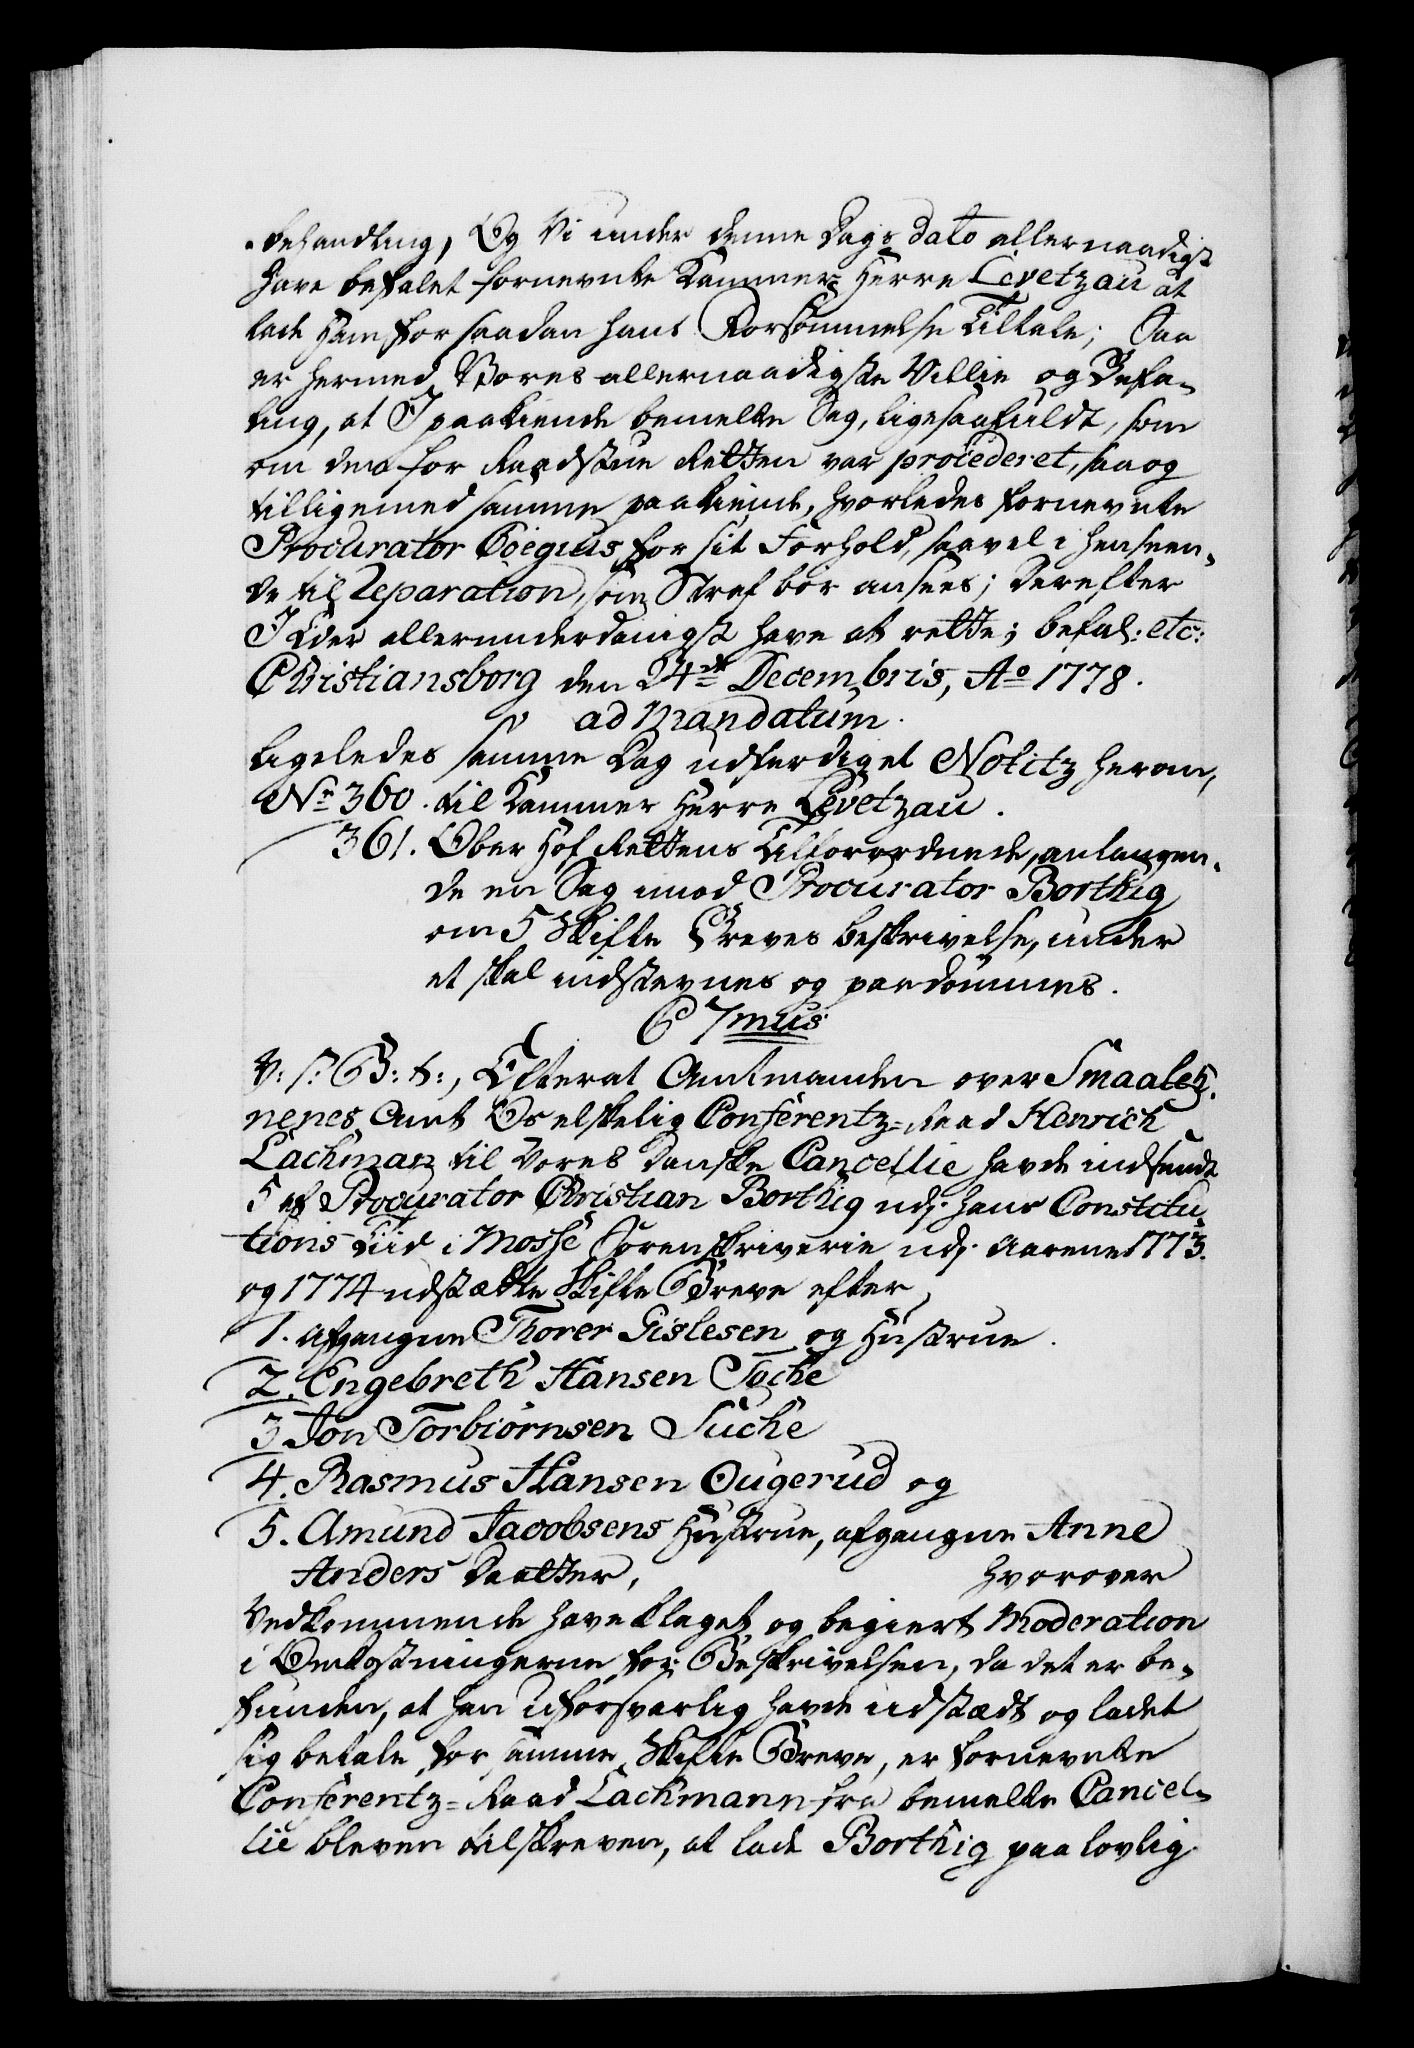 behandling, Og Vi under denne Dags Dato allernaadigst
have befalet fornevnte Kammer-Herre Levetzau at
lade Ham for saadan hans Forsømmelse tiltale; Saa
er hermed Vores allernaadigste Villie og Befa-
ling, at I paakiende bemelte Sag, ligesaafuldt, som
om den for Raadstue Retten var procederet, saa og
tilligemed samme paakiende, hvorledes fornevnte
Procurator Coëgius for sit Forhold, saavel i Henseen-
de til Reparation, som Straf bør ansees; Derefter
I Eder allerunderdanigst have at rette; befal: etc:
Christiansborg den 24de Decembris, Ao 1778.
ad Mandatum.
Ligeledes samme Dag udferdiget Notitz herom,
No 360. til Kammer Herre Levetzau.
361. Ober Hof Rettens Tilforordnede, anlangen-
de en Sag imod Procurator Borthig
om 5 Skifte Breves Beskrivelse, under
et skal indstevnes og paadømmes.
C 7mus
V: s: G: t:, Efterat Amtmanden over Smaaleh-
nenes Amt Os elskelig Conferentz-Raad Henrich
Lachman til Vores Danske Cancellie havde indsendt
5 af Procurator Christian Borthig udj hans Constitu-
tions Tiid i Mosse Sorenskriverie udj Aarene 1773.
og 1774 udstædte Skifte Breve efter
1. afgangne Thorer Gislesen og Hustrue.
2. Engebreth Hansen Soche
3 Jon Torbiørnsen Suche
4. Rasmus Hansen Ougerud og
5. Amund Jacobsens Hustrue, afgangne Anne
Anders Daatter, hvorover
Vedkommende have klaget og begiert Moderation
i Omkostningerne for Beskrivelsen, da det er be-
funden, at han uforsvarlig havde udstædt og ladet
sig betale for samme Skifte Breve, er fornevnte
Conferentz-Raad Lachmann fra bemelte Cancel-
lie bleven tilskreven, at lade Borthig paa lovlig